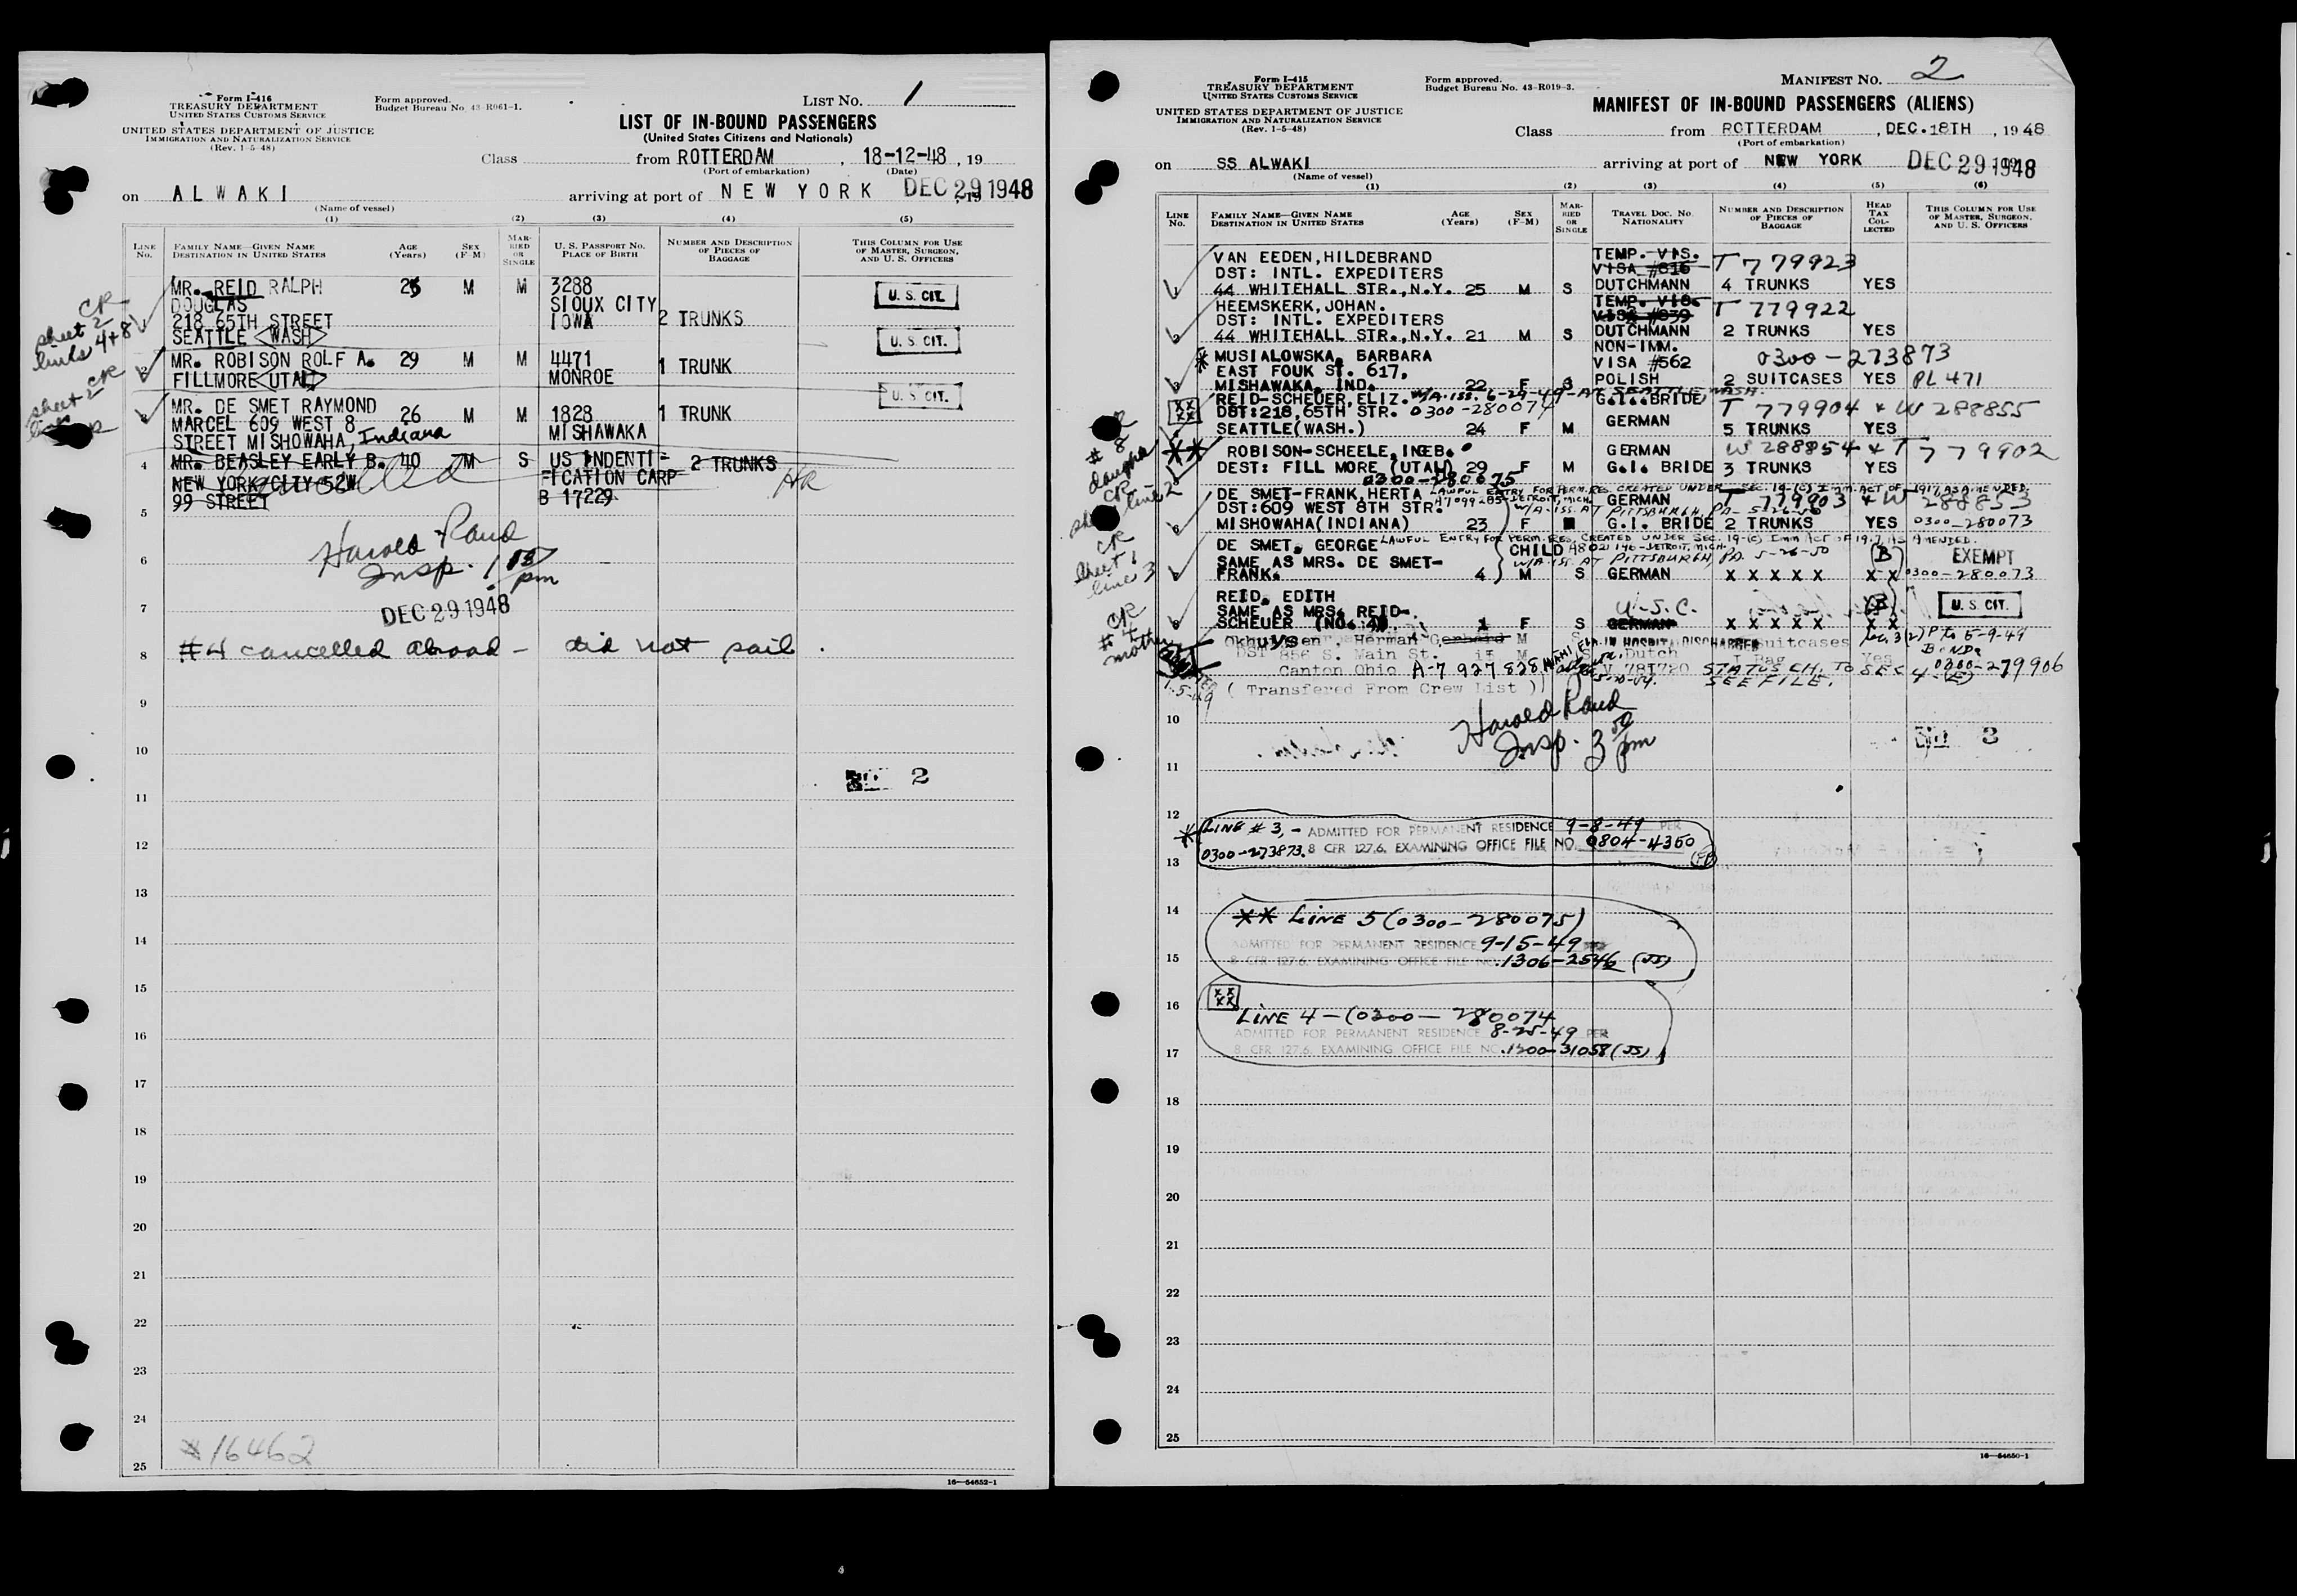 Form I-416
TREASURY DEPARTMENT
UNITED STATES CUSTOMS SERVICE
UNITED STATES DEPARTMENT OF JUSTICE
IMMIGRATION AND NATURALIZATION SERVICE
(Rev. 1-5-48)
Form approved.
Budget Bureau No. 43-R061-1.
LIST NO. 1
LIST OF IN-BOUND PASSENGERS
(United States Citizens and Nationals)
Class from ROTTERDAM, 18-12-48, 19
(Port of embarkation) (Date)
on ALWAKI arriving at port of NEW YORK DEC 29 1948
(Name of vessel)
(1) (2) (3) (4) (5)
LINE NO. FAMILY NAME—GIVEN NAME DESTINATION IN UNITED STATES AGE (Years) SEX (F-M) MARRIED OR SINGLE U. S. PASSPORT NO. PLACE OF BIRTH NUMBER AND DESCRIPTION OF PIECES OF BAGGAGE THIS COLUMN FOR USE OF MASTER, SURGEON, AND U. S. OFFICERS
CR
sheet 2
lines 4+8
MR. REID RALPH M M 3288
DOUGLAS SIOUX CITY
218 65TH STREET IOWA 2 TRUNKS
SEATTLE <WASH>
U. S. CIT.
MR. ROBISON ROLF A. 29 M M 4471 1 TRUNK
FILLMORE <UTAH> MONROE
U. S. CIT.
CR
sheet 2
MR. DE SMET RAYMOND 26 M M 1828 1 TRUNK
MARCEL 609 WEST 8
STREET MISHOWAHA, Indiana MISHAWAKA
U. S. CIT.
4 MR. BEASLEY EARLY B. 40 M S US INDENTI- 2 TRUNKS
NEW YORK CITY 52W FICATION CARP
99 STREET B 17229
HR
Harold Rand
Insp.
pm
DEC 29 1948
#4 cancelled abroad - did not sail.
5
6
7
8
9
10
2
11
12
13
14
15
16
17
18
19
20
21
22
23
24
*16462
25
16—54652-1
Form I-415
TREASURY DEPARTMENT
UNITED STATES CUSTOMS SERVICE
UNITED STATES DEPARTMENT OF JUSTICE
IMMIGRATION AND NATURALIZATION SERVICE
(Rev. 1-5-48)
Form approved.
Budget Bureau No. 43-R019-3.
MANIFEST NO. 2
MANIFEST OF IN-BOUND PASSENGERS (ALIENS)
Class from ROTTERDAM, DEC. 18TH, 1948
(Port of embarkation)
on SS ALWAKI arriving at port of NEW YORK DEC 29 1948
(Name of vessel)
(1) (2) (3) (4) (5) (6)
LINE NO. FAMILY NAME—GIVEN NAME DESTINATION IN UNITED STATES AGE (Years) SEX (F-M) MARRIED OR SINGLE TRAVEL DOC. NO. NATIONALITY NUMBER AND DESCRIPTION OF PIECES OF BAGGAGE HEAD TAX COLLECTED THIS COLUMN FOR USE OF MASTER, SURGEON, AND U. S. OFFICERS
VAN EEDEN, HILDEBRAND TEMP. VIS.
DST: INTL. EXPEDITERS VISA #816 T 779923
44 WHITEHALL STR., N.Y. 25 M S DUTCHMANN 4 TRUNKS YES
HEEMSKERK, JOHAN. TEMP. VIS.
DST: INTL. EXPEDITERS VISA #839 T 779922
44 WHITEHALL STR., N.Y. 21 M S DUTCHMANN 2 TRUNKS YES
NON-IMM.
* MUSIALOWSKA, BARBARA VISA #562 0300-273873
EAST FOUK ST. 617,
MISHAWAKA, IND. 22 F S POLISH 2 SUITCASES YES PL 471
REID-SCHEUER, ELIZ. W/A. iss. 6-29-49-AT SEATTLE, WASH. G.I. BRIDE
DST: 218, 65TH STR. 0300-280074 T 779904 + W 288855
SEATTLE (WASH.) 24 F M GERMAN 5 TRUNKS YES
** ROBISON-SCHEELE, INGEB. GERMAN W 288854 + T 779902
DEST: FILL MORE (UTAH) 29 F M G.I. BRIDE 3 TRUNKS YES
0300-280075
DE SMET-FRANK, HERTA LAWFUL ENTRY FOR PERM. RES. CREATED UNDER SEC. 19-(c) IMM. ACT OF 1917, AS AMENDED.
DST: 609 WEST 8TH STR. A7099285-DETROIT, MICH. GERMAN T 779903 + W 288853
W/A. iss. AT PITTSBURGH, PA- 5-26-50
MISHOWAHA (INDIANA) 23 F G.I. BRIDE 2 TRUNKS YES 0300-280073
DE SMET, GEORGE LAWFUL ENTRY FOR PERM. RES. CREATED UNDER SEC. 19-(c) IMM ACT OF 1917, AS AMENDED.
CHILD A8021140-DETROIT, MICH. (B) EXEMPT
SAME AS MRS. DE SMET- W/A. iss. AT PITTSBURGH, PA. 5-26-50
FRANK. 4 M S GERMAN X X X X X X X 0300-280073
REID, EDITH U.S.C.
SAME AS MRS. REID- (B) U. S. CIT.
SCHEUER (NO. 4) 1 F S GERMAN X X X X X X X
Okhuysen, Herman Gerhard M S IN HOSPIT. DISCHARGED suitcases Sec. 3(2) P to 5-9-49
DST 856 S. Main St. Dutch 1 Bag Yes BOND
Canton Ohio A-7 927 828 V 781720 STATUS CH. TO SEC 4-(E) 0300-279906
(Transfered From Crew List) SEE FILE.
CR
# 8
daughter
CR
sheet 1
line 2
CR
sheet 1
line 3
CR
# 4
mother
Harold Rand
Insp. 3 50 pm
3
10
11
12
* LINE # 3, - ADMITTED FOR PERMANENT RESIDENCE 9-8-49 PER
0300-273873. 8 CFR 127.6. EXAMINING OFFICE FILE NO. 0804-4350
13
14
** LINE 5 (0300-280075)
ADMITTED FOR PERMANENT RESIDENCE 9-15-49 PER
15
8 CFR 127.6. EXAMINING OFFICE FILE NO. 1306-2546 (JS)
16
XX
XX
LINE 4 - (0300-280074
ADMITTED FOR PERMANENT RESIDENCE 8-25-49 PER
8 CFR 127.6. EXAMINING OFFICE FILE NO. 1300-31058 (JS)
17
18
19
20
21
22
23
24
25
16—54650-1